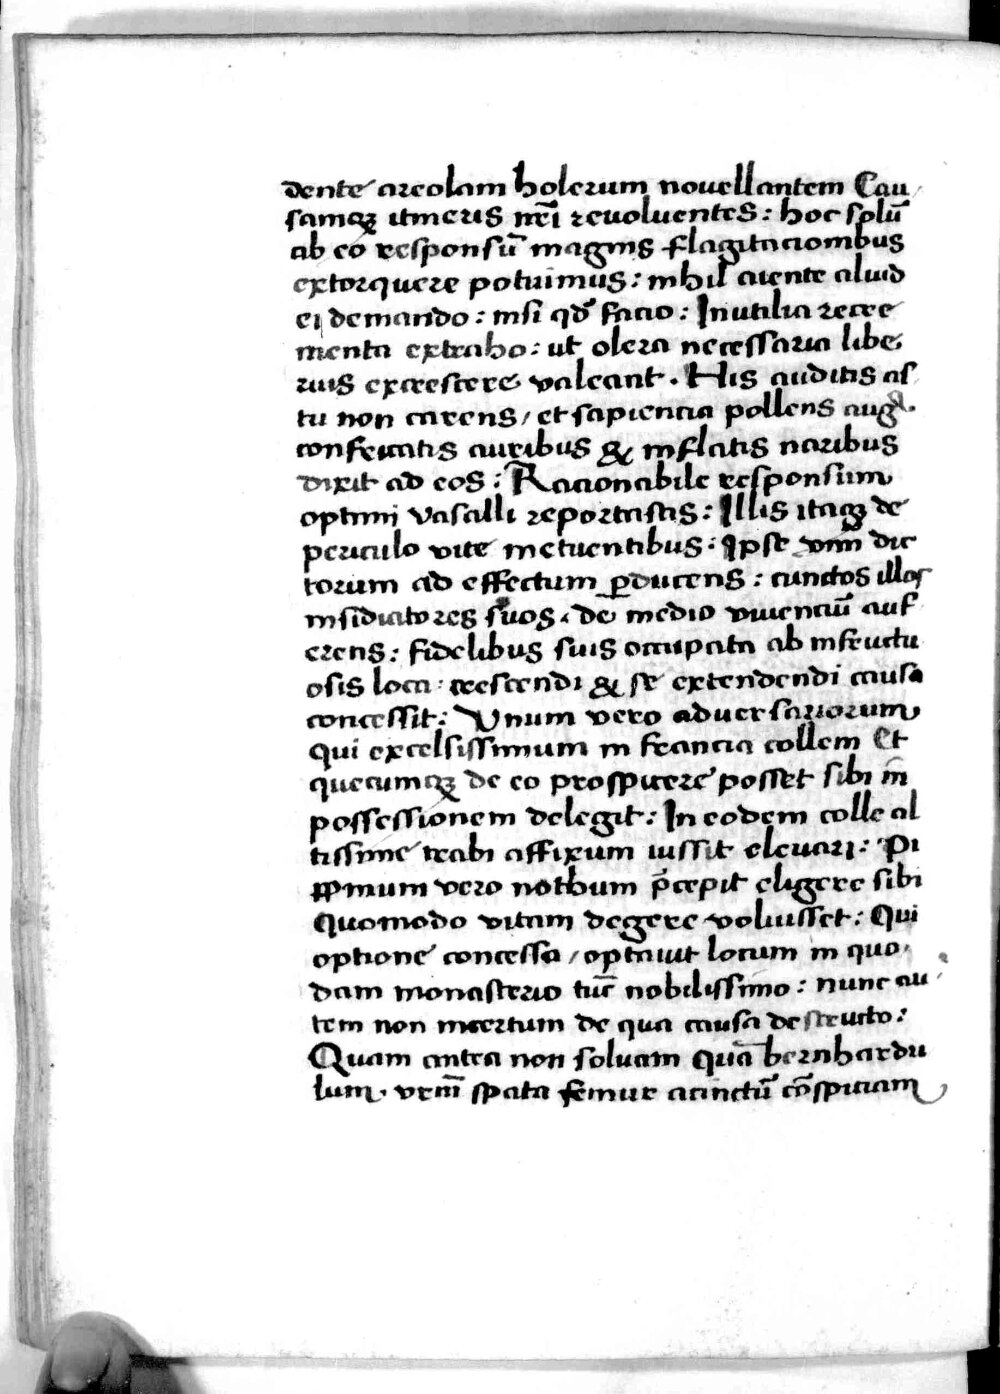 dente areolam holerum novellantem Cau
samqꝫ itineris nr̄i revoluentes: hoc solū
ab eo responsū magnis flagitacionibus
extorquere potuimus: nihil aiente aliud
ei demando: nisi qd̄ facio: Inutilia recre
menta extraho: ut olera necessaria libe
rius excrescere valeant. His auditis as
tu non carens, et sapiencia pollens aug͛
confricatis auribus & inflatis naribus
dixit ad eos: Racionabile responsum
optimi vasalli reportastis: Illis itaqꝫ de
periculo vite metuentibus: Ipse vim̄ dic
torum ad effectum ꝑducens: cunctos illos
insidiatores suos. de medio vivenciū auf
erens: fidelibus suis occupata ab infructu
osis loca: crescendi & se extendendi causa
concessit: Unum vero adversariorum
qui excelsissimum in francia collem Et
quecumqꝫ de eo prospicere posset sibi in
possessionem delegit: In eodem colle al
tissime trabi affixum iussit elevari: Pi
ppinum vero nothum p̄cepit eligere sibi
Quomodo vitam degere voluisset: Qui
optione concessa, optavit locum in quo
dam monasterio tūc nobilissimo: nunc au
tem non incertum de qua causa destructo:
Quam antea non solvam Quā bernhardu
lum. vr̄m spata femur accinctū cōspiciam